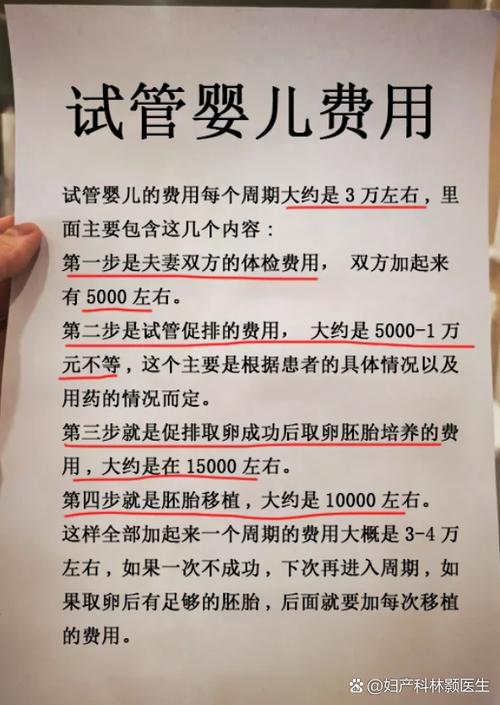 试管婴儿费用
试管婴儿的费用每个周期大约是3万左右，里
面主要包含这几个内容：
第一步是夫妻双方的体检费用， 双方加起来
有5000左右。
第二步是试管促排的费用， 大约是5000-1万
元不等，这个主要是根据患者的具体情况以及
用药的情况而定。
第三步就是促排取卵成功后取卵胚胎培养的费
用，大约是在15000左右。
第四步就是胚胎移植，大约是10000左右。
这样全部加起来一个周期的费用大概是3-4万
左右，如果一次不成功，下次再进入周期，如
果取卵后有足够的胚胎，后面就要加每次移植
的费用。
@妇产科林颢医生